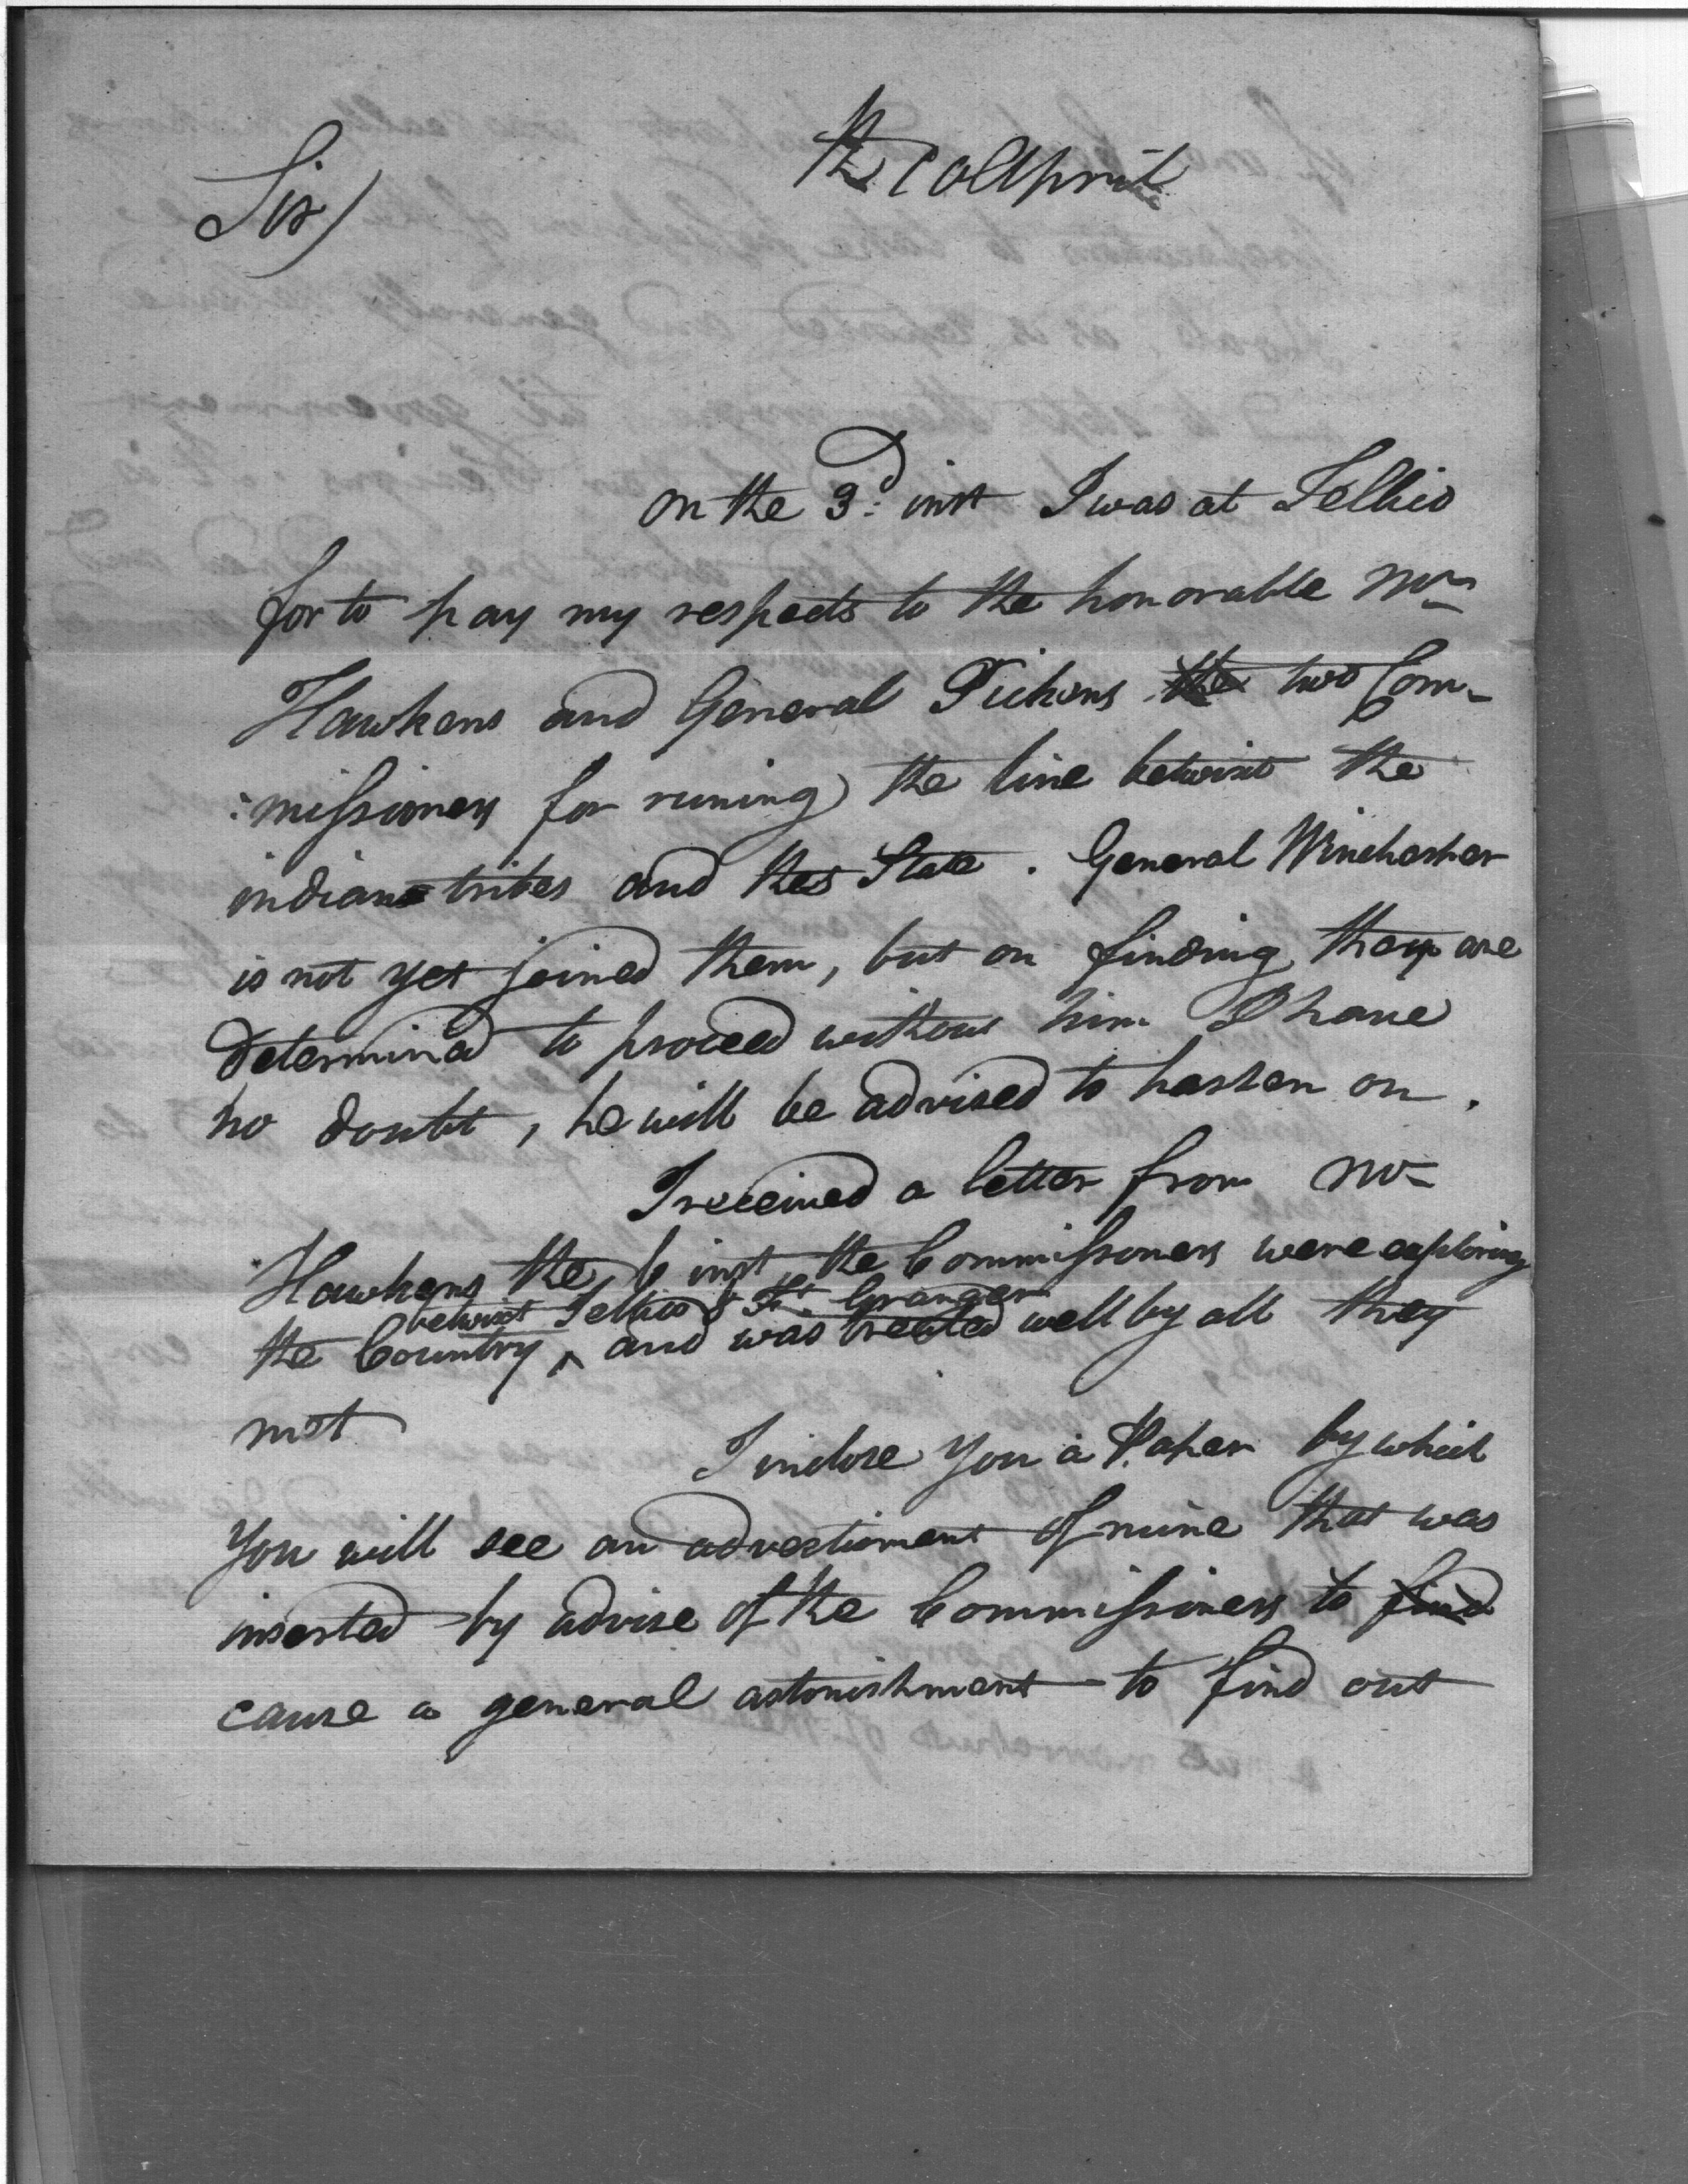 the 10 April
Sir)
on the 3d: inst I was at Tellico
for to pay my respects to the honorable Mr
Hawkens and General Pickens the two Com-
:missioners for runing the line betwixt the
indian tribes and the State. General Winchester
is not yet joined them, but on finding they are
determined to proceed without him I have
no doubt, he will be advised to hasten on.
I received a letter from Mr
Hawkens the 6 inst, the Commissioners were exploring
betwixt Tellico & Ft. Granger
the Country ^ and was treated well by all they
met
I inclose you a Paper by which
You will see an advertiment of mine that was
inserted by advise of the Commissioners to find
cause a general astonishment to find out